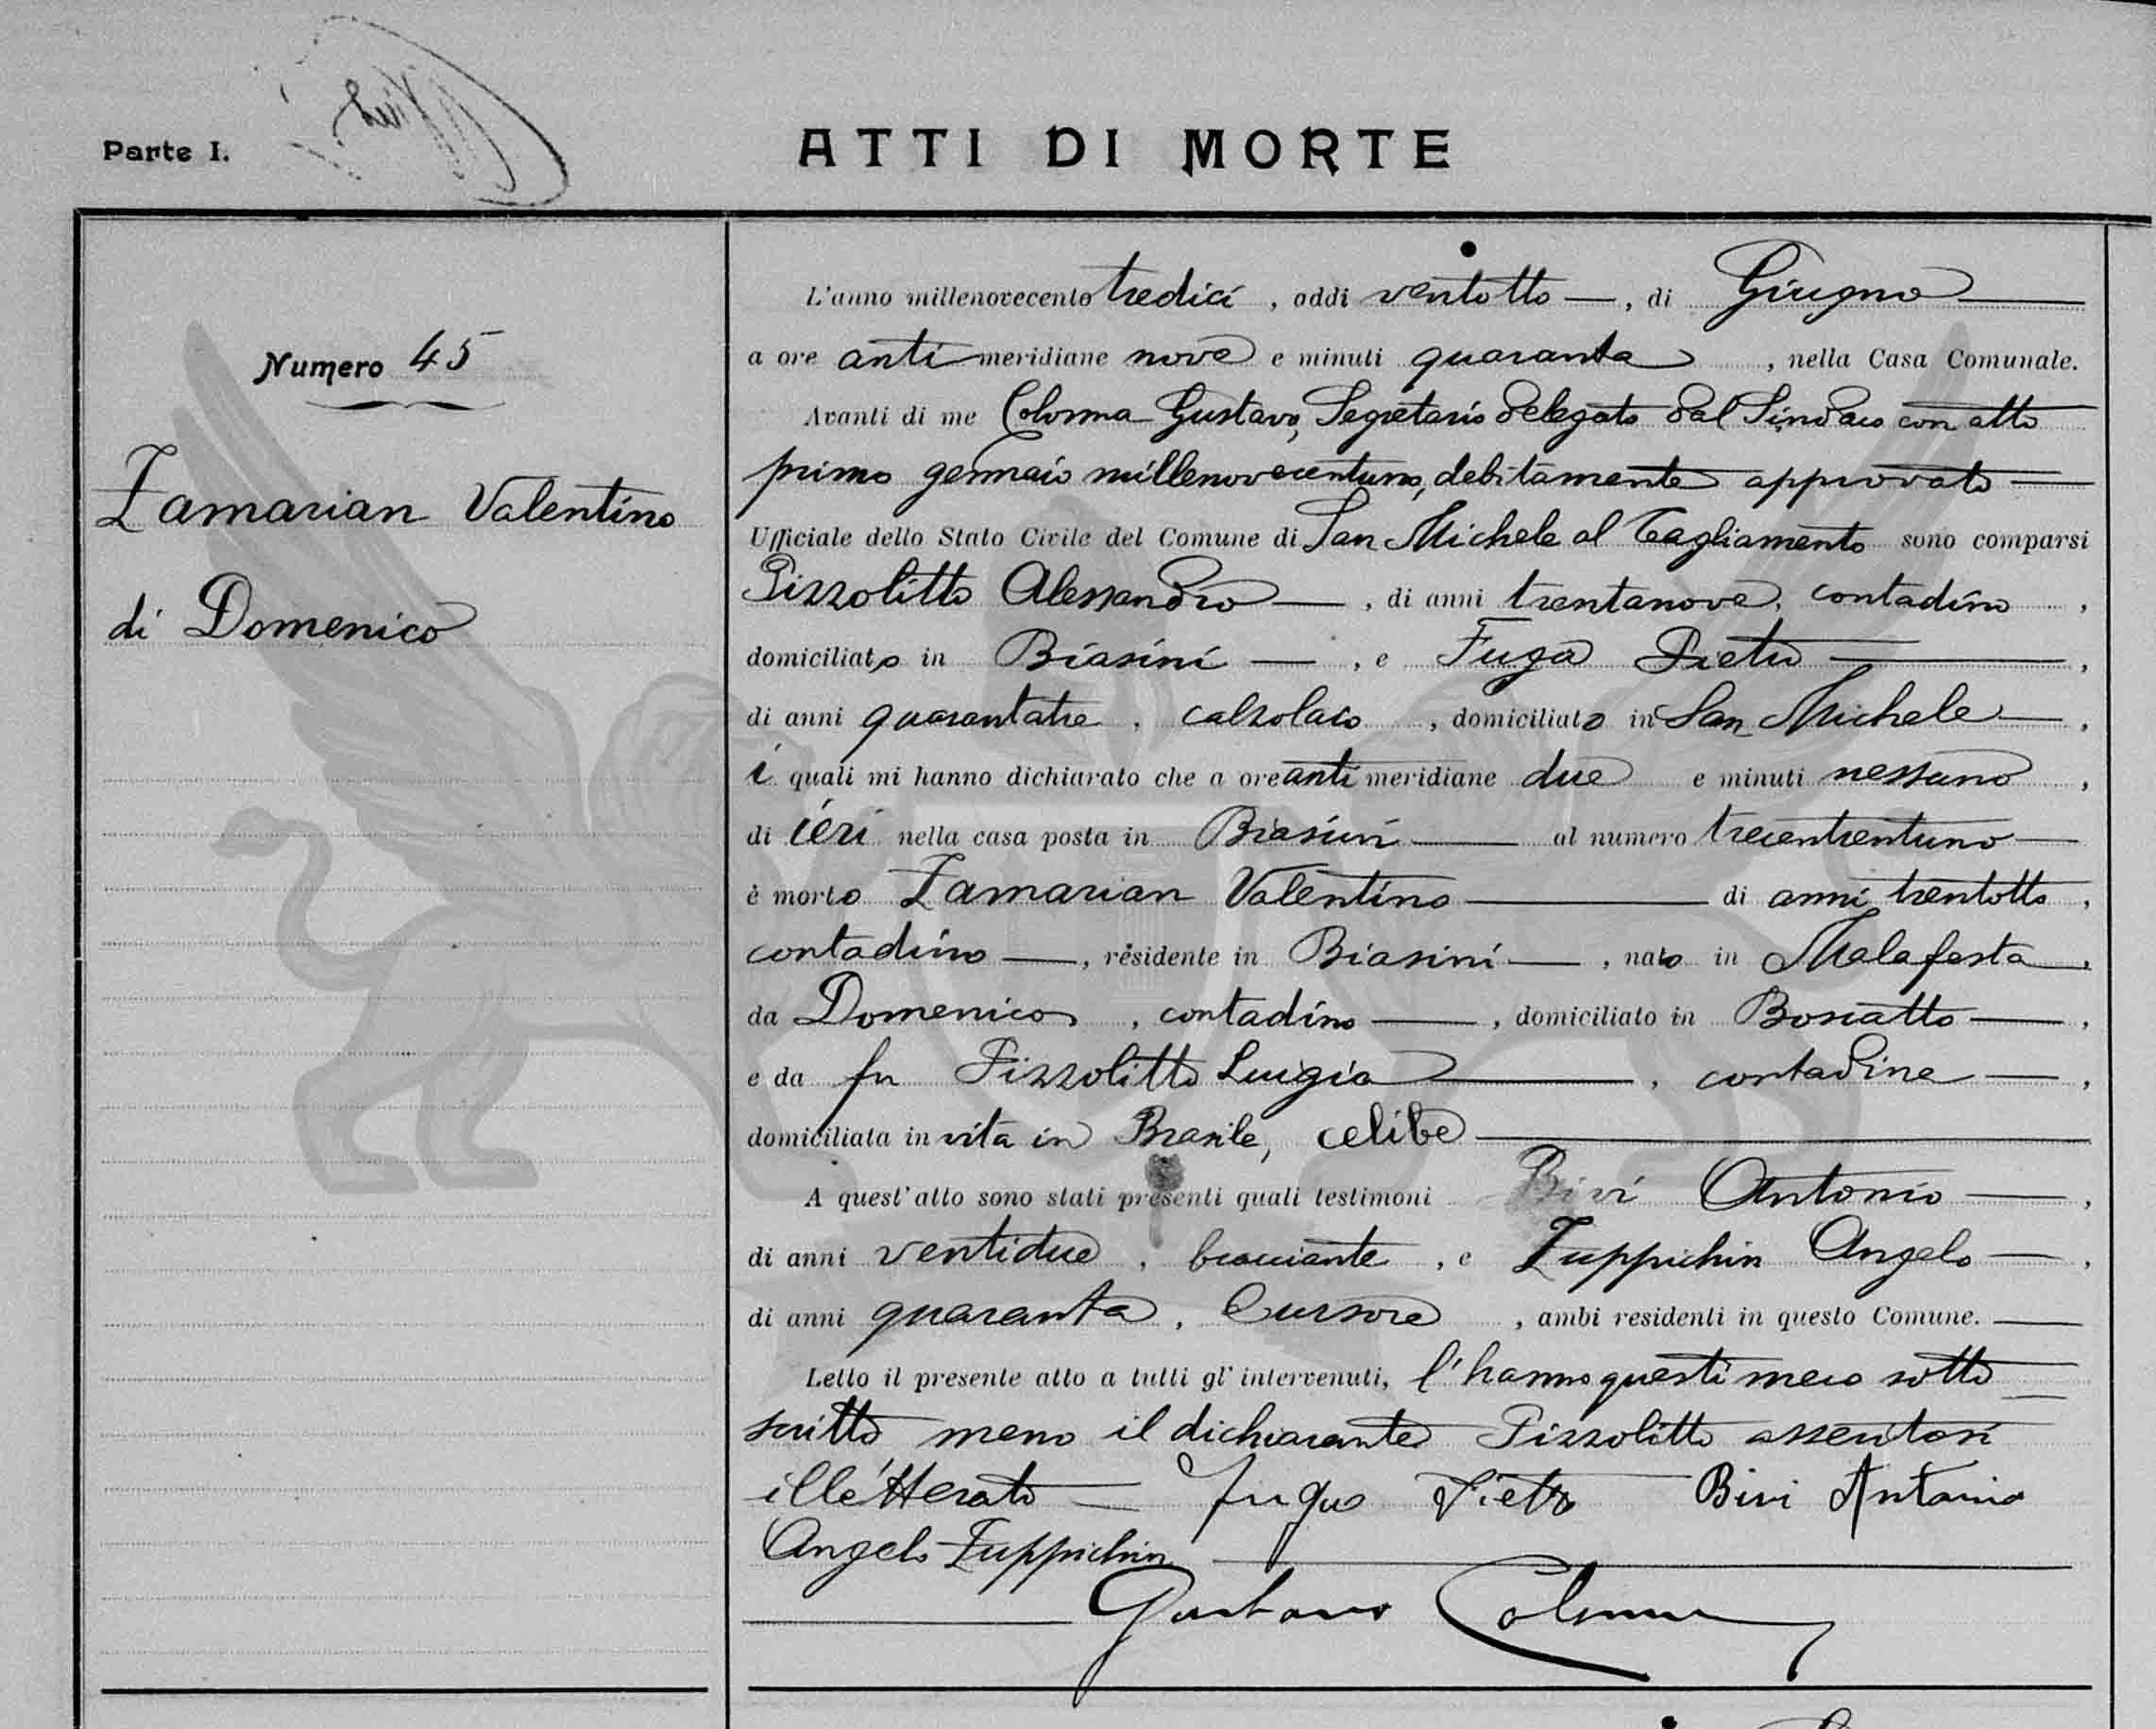 Parte I.
ATTI DI MORTE
Numero 45
Zamarian Valentino
di Domenico
L'anno millenovecento tredici, addì ventotto —, di Giugno —
a ore antimeridiane nove e minuti quaranta, nella Casa Comunale.
Avanti di me Colonna Gustavo, Segretario delegato dal Sindaco con atto
primo gennaio millenovecentuno, debitamente approvato —
Ufficiale dello Stato Civile del Comune di San Michele al Tagliamento sono comparsi
Pizzolitto Alessandro —, di anni trentanove, contadino,
domiciliato in Biasini —, e Fuga Pietro —,
di anni quarantatre, calzolaio, domiciliato in San Michele —,
i quali mi hanno dichiarato che a ore antimeridiane due e minuti nessuno,
di ieri nella casa posta in Biasini — al numero trecentrentuno —
è morto Zamarian Valentino — di anni trentotto,
contadino —, residente in Biasini —, nato in Malafesta,
da Domenico, contadino —, domiciliato in Boscatto —,
e da fu Pizzolitto Luigia —, contadina —,
domiciliata in vita in Brasile, celibe —
A quest'atto sono stati presenti quali testimoni Bivi Antonio —,
di anni ventidue, bracciante, e Zuppichin Angelo —,
di anni quaranta, Cursore, ambi residenti in questo Comune. —
Letto il presente atto a tutti gl'intervenuti, l'hanno questi meco sotto
scritto meno il dichiarante Pizzolitto assentosi
illetterato — Fuga Pietro Bivi Antonio
Angelo Zuppichin —
Gustavo Colonna